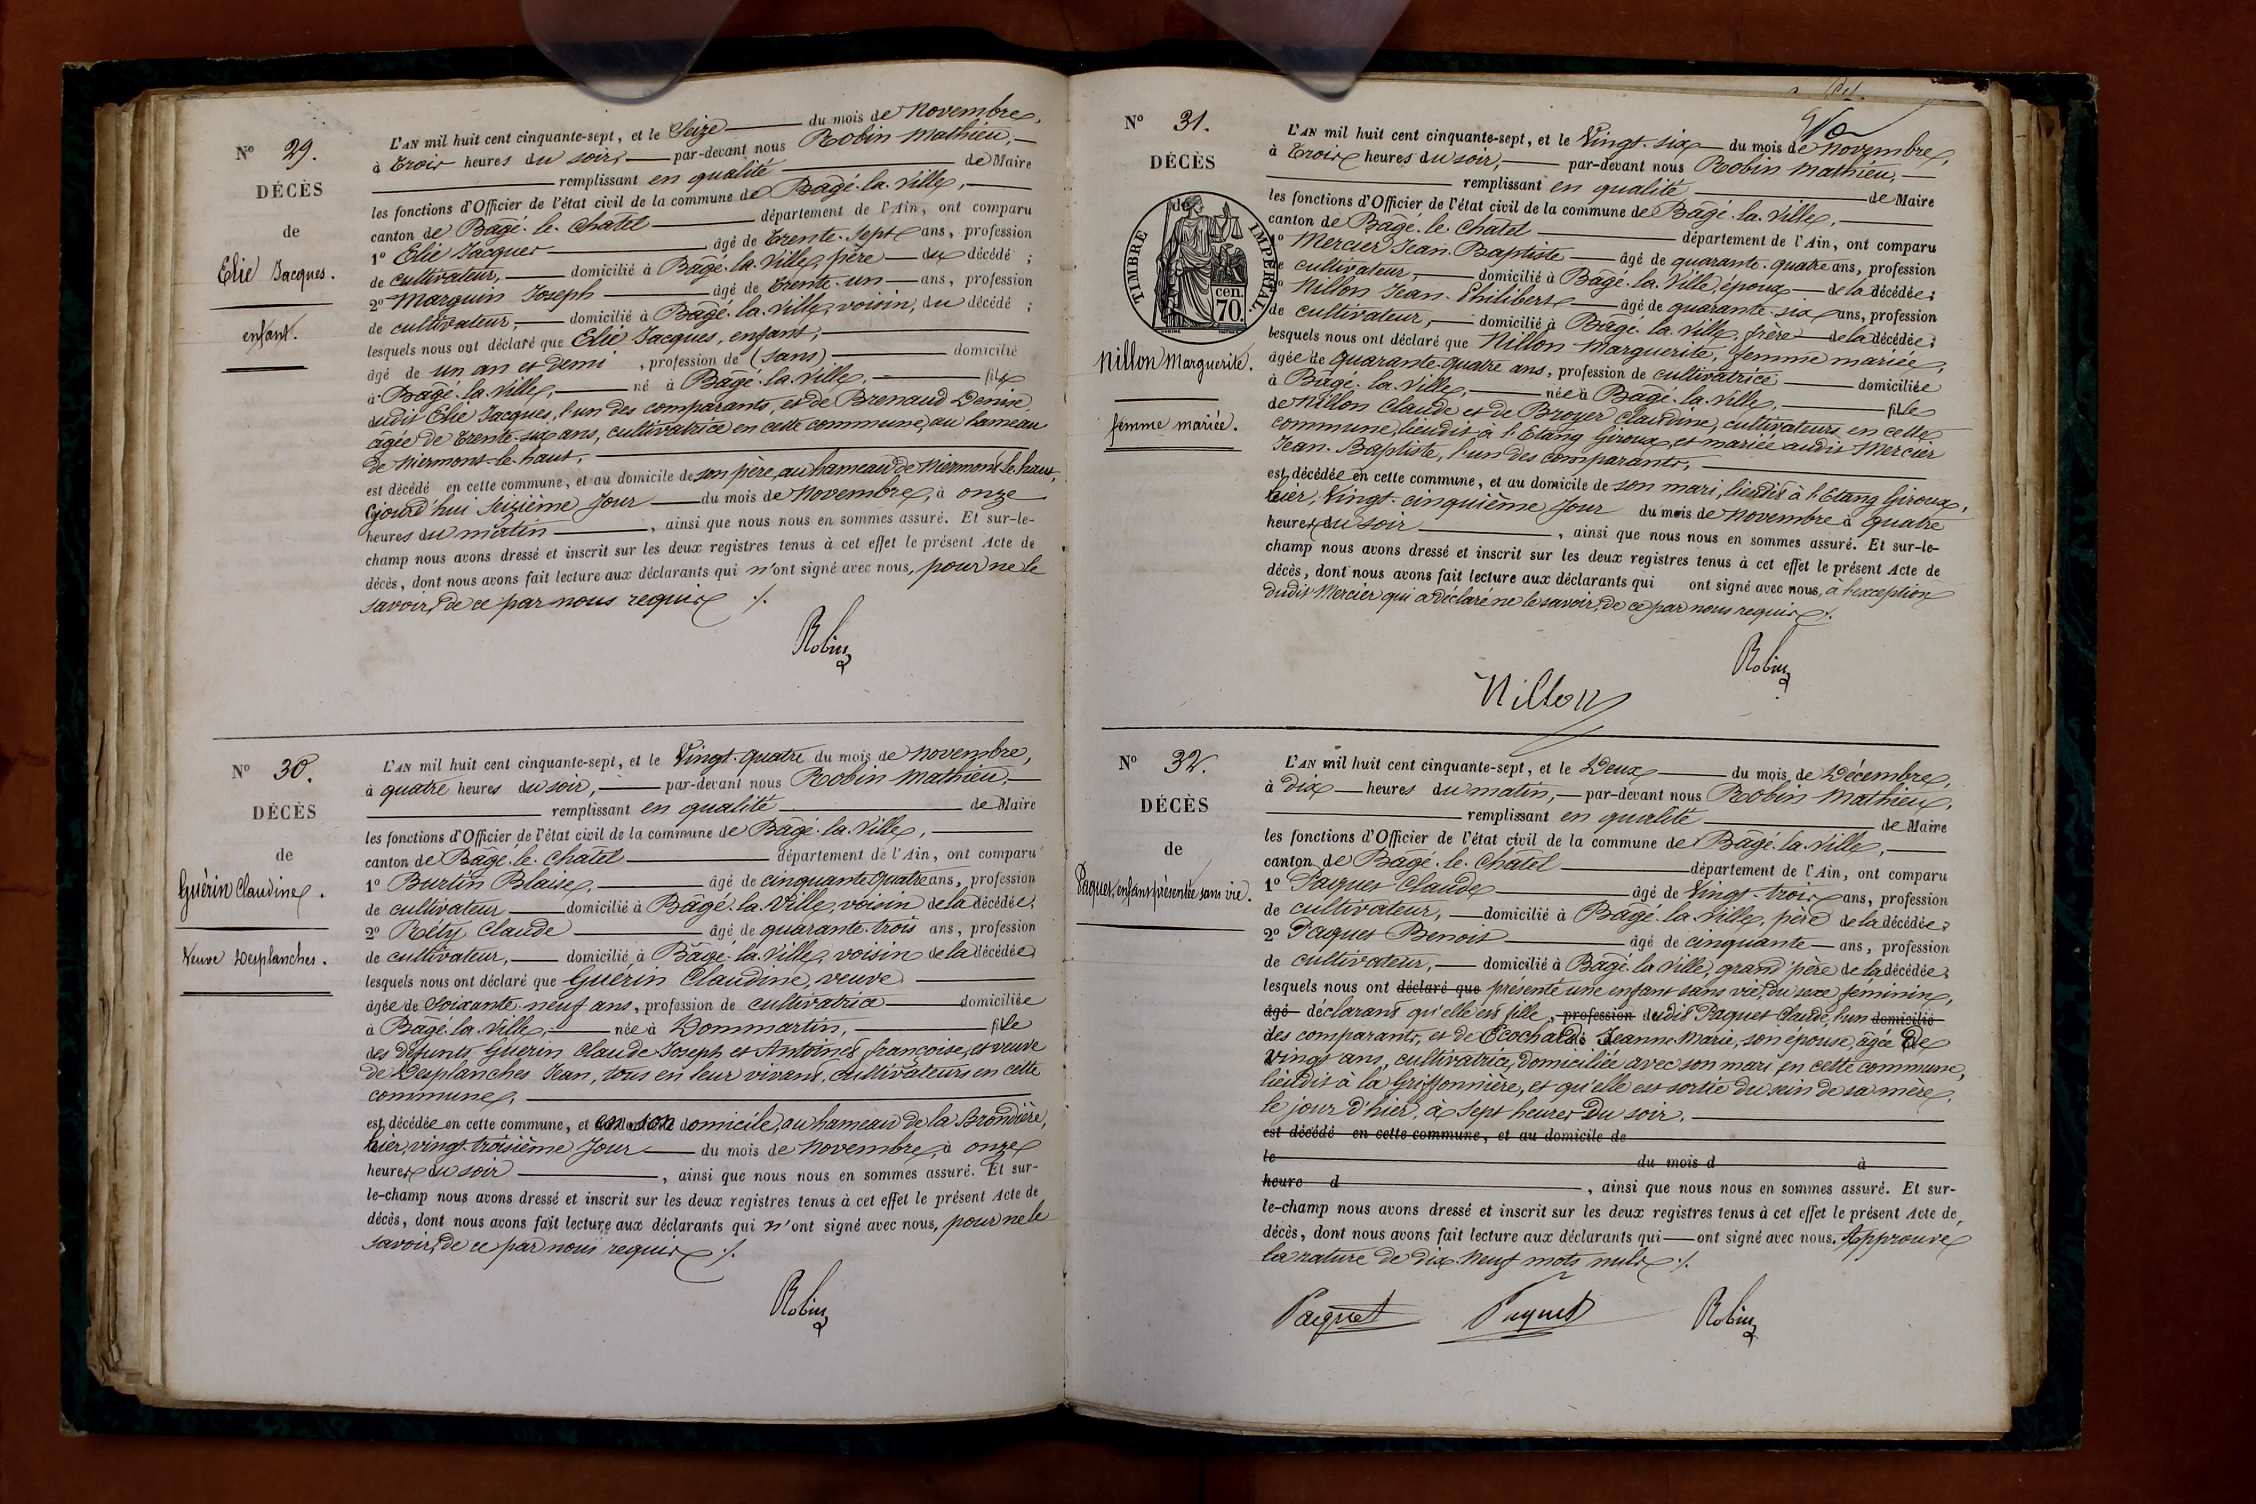 N° 29.
DÉCÈS
de
Elie Jacques.
enfant.
L'AN mil huit cent cinquante-sept, et le Seize du mois de Novembre,
à Trois heures du soir, par-devant nous Robin Mathieu,
remplissant en qualité de Maire
les fonctions d'Officier de l'état civil de la commune de Bâgé-la-Ville,
canton de Bâgé-le-Châtel département de l'Ain, ont comparu
1° Elie Jacques âgé de Trente-sept ans, profession
de cultivateur, domicilié à Bâgé-la-Ville, père du décédé ;
2° Marguin Joseph âgé de Trente-un ans, profession
de cultivateur, domicilié à Bâgé-la-Ville, voisin, du décédé ;
lesquels nous ont déclaré que Elie Jacques, enfant,
âgé de un an et demi , profession de (sans) domicilié
à Bâgé-la-Ville, né à Bâgé-la-Ville, fils
dudit Elie Jacques, l'un des comparants, et de Brenaud Denise,
âgée de Trente-six ans, cultivatrice en cette commune, au hameau
de Niermont-le-haut,
est décédé en cette commune, et au domicile de son père, au hameau de Niermont-le-haut,
cejourd'hui Seizième Jour du mois de Novembre, à onze
heures du matin , ainsi que nous nous en sommes assuré. Et sur-le-
champ nous avons dressé et inscrit sur les deux registres tenus à cet effet le présent Acte de
décès, dont nous avons fait lecture aux déclarants qui n'ont signé avec nous, pour ne le
savoir, de ce par nous requis ./.
Robin
N° 30.
DÉCÈS
de
Guérin Claudine.
Veuve Desplanches.
L'AN mil huit cent cinquante-sept, et le Vingt-quatre du mois de Novembre,
à quatre heures du soir, par-devant nous Robin Mathieu,
remplissant en qualité de Maire
les fonctions d'Officier de l'état civil de la commune de Bâgé-la-Ville,
canton de Bâgé-le-Châtel département de l'Ain, ont comparu
1° Burtin Blaise, âgé de cinquante quatre ans, profession
de cultivateur domicilié à Bâgé-la-Ville, voisin de la décédée;
2° Réty Claude âgé de quarante-trois ans, profession
de cultivateur, domicilié à Bâgé-la-Ville, voisin de la décédée
lesquels nous ont déclaré que Guérin Claudine, veuve
âgée de Soixante-neuf ans, profession de cultivatrice domiciliée
à Bâgé-la-Ville, née à Dommartin, fille
des défunts Guérin Claude Joseph et Antoinet françoise, et veuve
de Desplanches Jean, tous en leur vivant, cultivateurs en cette
commune,
est décédée en cette commune, et en son domicile, au hameau de la Brondière,
hier, vingt-troisième Jour du mois de Novembre, à onze
heures du soir , ainsi que nous nous en sommes assuré. Et sur-
le-champ nous avons dressé et inscrit sur les deux registres tenus à cet effet le présent Acte de
décès, dont nous avons fait lecture aux déclarants qui n'ont signé avec nous, pour ne le
savoir, de ce par nous requis ./.
Robin
N° 31.
DÉCÈS
de
TIMBRE IMPÉRIAL
cen.
70.
Nillon Marguerite.
femme mariée.
L'AN mil huit cent cinquante-sept, et le Vingt-six du mois de Novembre,
à Trois heures du soir, par-devant nous Robin Mathieu,
remplissant en qualité de Maire
les fonctions d'Officier de l'état civil de la commune de Bâgé-la-Ville,
canton de Bâgé-le-Châtel département de l'Ain, ont comparu
1° Mercier Jean-Baptiste âgé de quarante-quatre ans, profession
de cultivateur, domicilié à Bâgé-la-Ville, époux de la décédée;
2° Nillon Jean-Philibert âgé de quarante-six ans, profession
de cultivateur, domicilié à Bâgé-la-Ville, frère de la décédée;
lesquels nous ont déclaré que Nillon Marguerite, femme mariée,
âgée de quarante-quatre ans, profession de cultivatrice domiciliée
à Bâgé-la-Ville, née à Bâgé-la-Ville, fille
de Nillon Claude et de Broyer Claudine, cultivateurs en cette
commune, lieudit à l'Etang Giroux, et mariée audit Mercier
Jean-Baptiste, l'un des comparants,
est décédée en cette commune, et au domicile de son mari, lieudit à l'Etang Giroux,
hier, Vingt-cinquième Jour du mois de Novembre à quatre
heures du soir , ainsi que nous nous en sommes assuré. Et sur-le-
champ nous avons dressé et inscrit sur les deux registres tenus à cet effet le présent Acte de
décès, dont nous avons fait lecture aux déclarants qui ont signé avec nous, à l'exception
dudit Mercier qui a déclaré ne le savoir, de ce par nous requis ./.
Robin
Nillon
N° 32.
DÉCÈS
de
Paquet, enfant présentée sans vie.
L'AN mil huit cent cinquante-sept, et le Deux du mois de Décembre,
à Dix heures du matin, par-devant nous Robin Mathieu,
remplissant en qualité de Maire
les fonctions d'Officier de l'état civil de la commune de Bâgé-la-Ville,
canton de Bâgé-le-Châtel département de l'Ain, ont comparu
1° Paquet Claude âgé de Vingt-trois ans, profession
de cultivateur, domicilié à Bâgé-la-Ville, père de la décédée;
2° Paquet Benoit âgé de cinquante ans, profession
de cultivateur, domicilié à Bâgé-la-Ville, grand'père de la décédée;
lesquels nous ont déclaré que présenté une enfant sans vie, du sexe féminin,
âgé déclarant qu'elle est fille, profession dudit Paquet Claude, l'un domicilié
des comparants, et de Ecochard Jeanne-Marie, son épouse, âgée de
vingt ans, cultivatrice, domiciliée avec son mari en cette commune,
lieudit à la Griffonnière, et qu'elle est sortie du sein de sa mère,
le jour d'hier, à sept heures du soir.
est décédé en cette commune, et au domicile de
le du mois d à
heure d , ainsi que nous nous en sommes assuré. Et sur-
le-champ nous avons dressé et inscrit sur les deux registres tenus à cet effet le présent Acte de
décès, dont nous avons fait lecture aux déclarants qui ont signé avec nous. Approuvé
la rature de dix-neuf mots nuls ./.
Paquet Paquet Robin